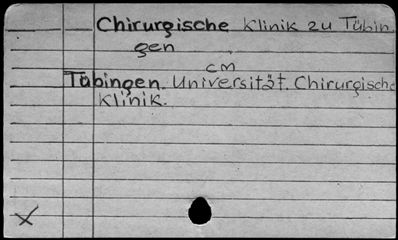 Chirurgische Klinik zu Tübin
gen
cm
Tübingen. Universität. Chirurgische
Klinik.
X